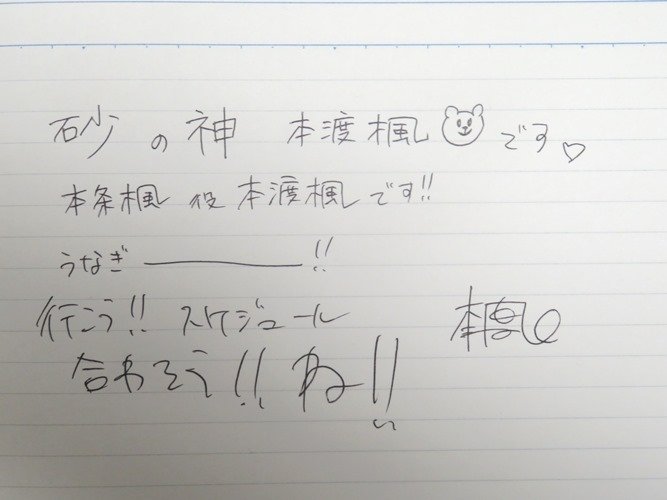 砂の神 本渡楓です♡
本条楓役 本渡楓です!!
うなぎ――――!!
行こう!! スケジュール
合わそう!! ね!!